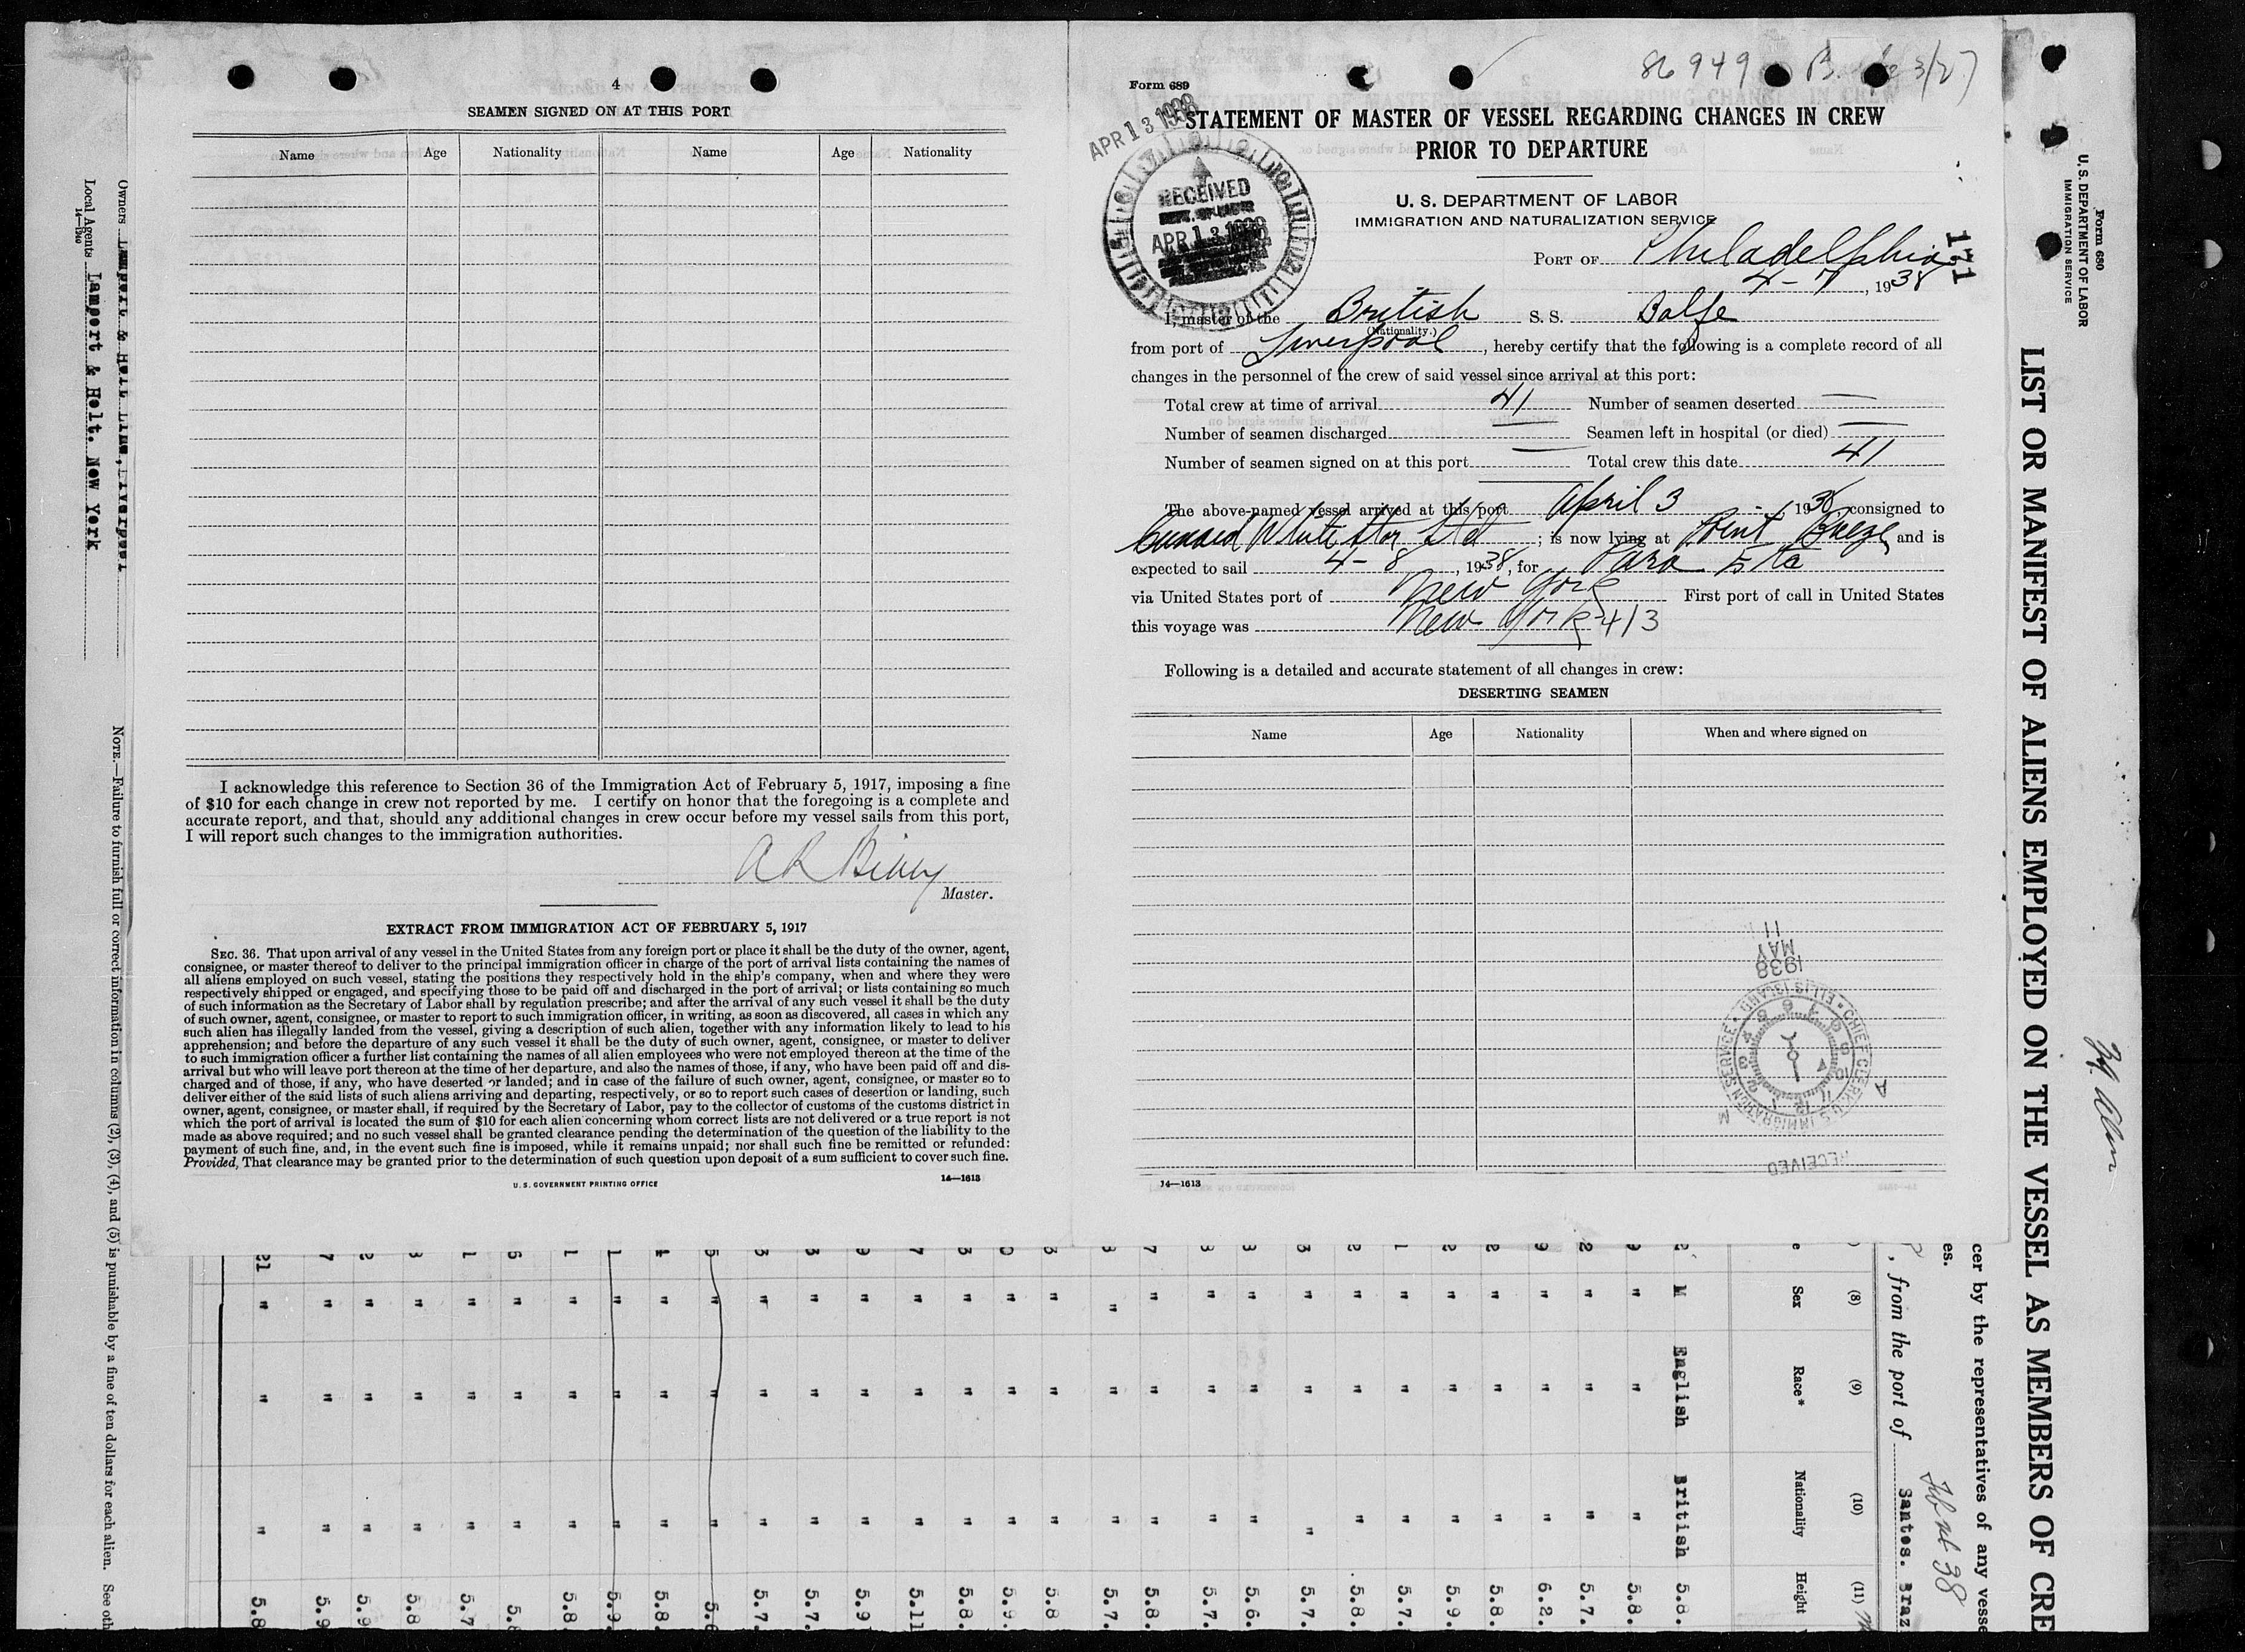 4
SEAMEN SIGNED ON AT THIS PORT
Name Age Nationality Name Age Nationality
I acknowledge this reference to Section 36 of the Immigration Act of February 5, 1917, imposing a fine
of $10 for each change in crew not reported by me. I certify on honor that the foregoing is a complete and
accurate report, and that, should any additional changes in crew occur before my vessel sails from this port,
I will report such changes to the immigration authorities.
A R
Master.
EXTRACT FROM IMMIGRATION ACT OF FEBRUARY 5, 1917
SEC. 36. That upon arrival of any vessel in the United States from any foreign port or place it shall be the duty of the owner, agent,
consignee, or master thereof to deliver to the principal immigration officer in charge of the port of arrival lists containing the names of
all aliens employed on such vessel, stating the positions they respectively hold in the ship's company, when and where they were
respectively shipped or engaged, and specifying those to be paid off and discharged in the port of arrival; or lists containing so much
of such information as the Secretary of Labor shall by regulation prescribe; and after the arrival of any such vessel it shall be the duty
of such owner, agent, consignee, or master to report to such immigration officer, in writing, as soon as discovered, all cases in which any
such alien has illegally landed from the vessel, giving a description of such alien, together with any information likely to lead to his
apprehension; and before the departure of any such vessel it shall be the duty of such owner, agent, consignee, or master to deliver
to such immigration officer a further list containing the names of all alien employees who were not employed thereon at the time of the
arrival but who will leave port thereon at the time of her departure, and also the names of those, if any, who have been paid off and dis-
charged and of those, if any, who have deserted or landed; and in case of the failure of such owner, agent, consignee, or master so to
deliver either of the said lists of such aliens arriving and departing, respectively, or so to report such cases of desertion or landing, such
owner, agent, consignee, or master shall, if required by the Secretary of Labor, pay to the collector of customs of the customs district in
which the port of arrival is located the sum of $10 for each alien concerning whom correct lists are not delivered or a true report is not
made as above required; and no such vessel shall be granted clearance pending the determination of the question of the liability to the
payment of such fine, and, in the event such fine is imposed, while it remains unpaid; nor shall such fine be remitted or refunded:
Provided, That clearance may be granted prior to the determination of such question upon deposit of a sum sufficient to cover such fine.
U. S. GOVERNMENT PRINTING OFFICE 14—1613
86949 3/27
Form 689
APR 13 1938
STATEMENT OF MASTER OF VESSEL REGARDING CHANGES IN CREW
PRIOR TO DEPARTURE
RECEIVED
APR 13 1938
U. S. DEPARTMENT OF LABOR
IMMIGRATION AND NATURALIZATION SERVICE
171
PORT OF Philadelphia
4-7, 1938
I, master of the British S. S. Balfe
(Nationality.)
from port of Liverpool, hereby certify that the following is a complete record of all
changes in the personnel of the crew of said vessel since arrival at this port:
Total crew at time of arrival 41 Number of seamen deserted —
Number of seamen discharged — Seamen left in hospital (or died) —
Number of seamen signed on at this port — Total crew this date 41
The above-named vessel arrived at this port April 3, 1938, consigned to
Cunard White Star Ltd; is now lying at Point Breeze and is
expected to sail 4-8, 1938, for Para
via United States port of New York First port of call in United States
this voyage was New York
Following is a detailed and accurate statement of all changes in crew:
DESERTING SEAMEN
Name Age Nationality When and where signed on
MAY 11
1938
CHIEF CLERK U.S. IMMIGRATION SERVICE ELLIS ISLAND
RECEIVED
14—1613
Form 680
U. S. DEPARTMENT OF LABOR
IMMIGRATION SERVICE
LIST OR MANIFEST OF ALIENS EMPLOYED ON THE VESSEL AS MEMBERS OF CRE
cer by the representatives of any vesse
es.
, from the port of Santos. Braz
(8) (9) (10) (11)
Sex Race* Nationality Height
M English British 5.8.
" " " 5.8.
" " " 5.7.
" " " 6.2.
" " " 5.8.
" " " 5.9.
" " " 5.7.
" " " 5.8.
" " " 5.7.
" " " 5.6.
" " " 5.7.
" " " 5.8.
" " " 5.7.
" " " 5.8
" " " 5.9.
" " " 5.8.
" " " 5.11
" " " 5.9
" " " 5.7.
" " " 5.7.
" " " 5.
" " " 5.8.
" " " 5.9.
" " " 5.8.
" " " 5.
" " " 5.7
" " " 5.8
" " " 5.9
" " " 5.9
21 " " " 5.8
Owners Lamport & Holt Line, Liverpool
Local Agents Lamport & Holt. New York
14—1240
NOTE.—Failure to furnish full or correct information in columns (2), (3), (4), and (5) is punishable by a fine of ten dollars for each alien. See oth